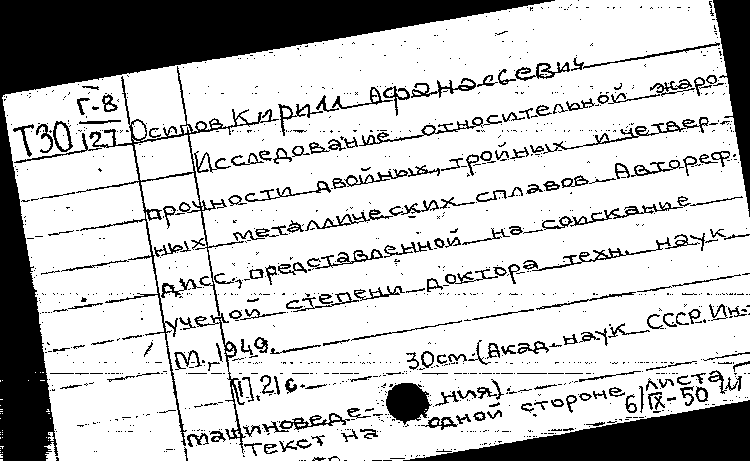 Г-8
Т30 127 Осипов, Кирилл Афанасьевич
Исследование относительной жаро-
прочности двойных, тройных и четвер-
ных металлических сплавов. Автореф.
дисс., представленной на соискание
ученой степени доктора техн. наук.
М., 1949.
[1], 21 с. 30 см. (Акад. наук СССР. Ин-т
машиноведения).
Текст на одной стороне листа
6/IX-50